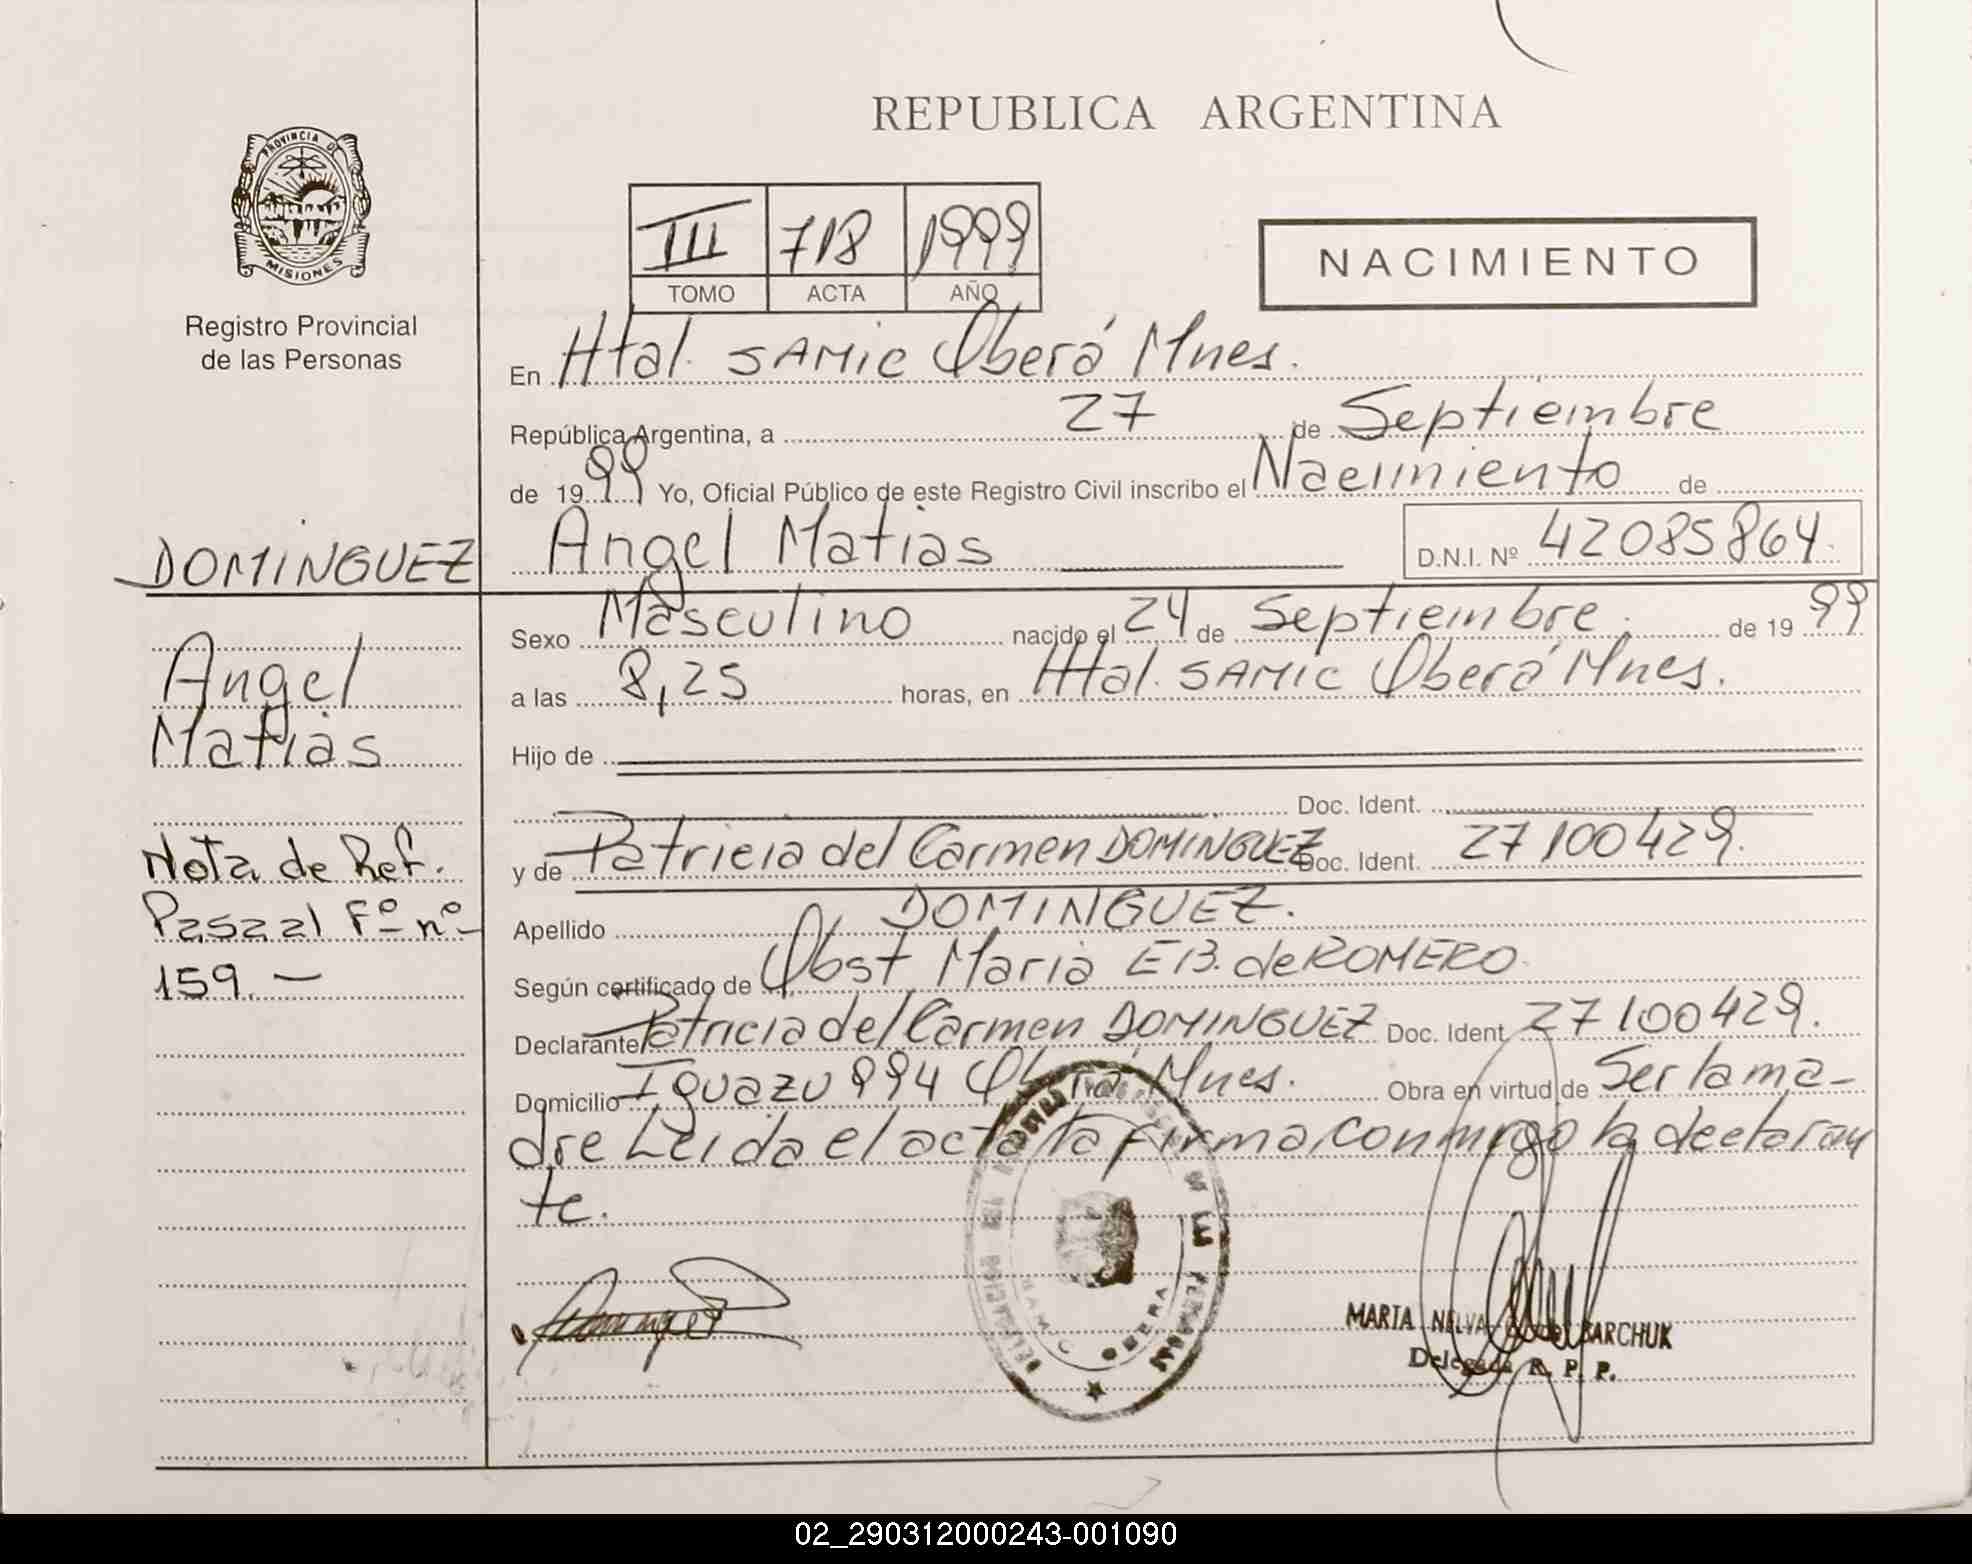 REPUBLICA ARGENTINA
PROVINCIA DE
MISIONES
Registro Provincial
de las Personas
III 718 1999
TOMO ACTA AÑO
NACIMIENTO
En Htal. SAMIC Oberá Mnes.
República Argentina, a 27 de Septiembre
de 1999 Yo, Oficial Público de este Registro Civil inscribo el Nacimiento de
DOMINGUEZ Angel Matias D.N.I. Nº 42085864.
Sexo Masculino nacido el 24 de Septiembre. de 1999
Angel
a las 8,25 horas, en Htal. SAMIC Oberá Mnes.
Matias
Hijo de
Doc. Ident.
Nota de Ref.
y de Patricia del Carmen DOMINGUEZ Doc. Ident. 27100429.
Pasa al Fº nº
Apellido DOMINGUEZ.
159.—
Según certificado de Obst Maria E B. de ROMERO.
Declarante Patricia del Carmen DOMINGUEZ Doc. Ident 27100429.
Domicilio Iguazu 994 Oberá Mnes. Obra en virtud de Ser la ma-
dre Leida el acta la firma conmigo la declaran
te.
DELEGACION DEL REGISTRO DE PERSONAS
OBERA
MARIA NELVA BARCHUK
Delegada R. P. P.
02_290312000243-001090